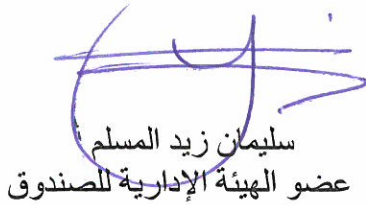 سليمان زيد المسلم
عضو الهيئة الإدارية للصندوق